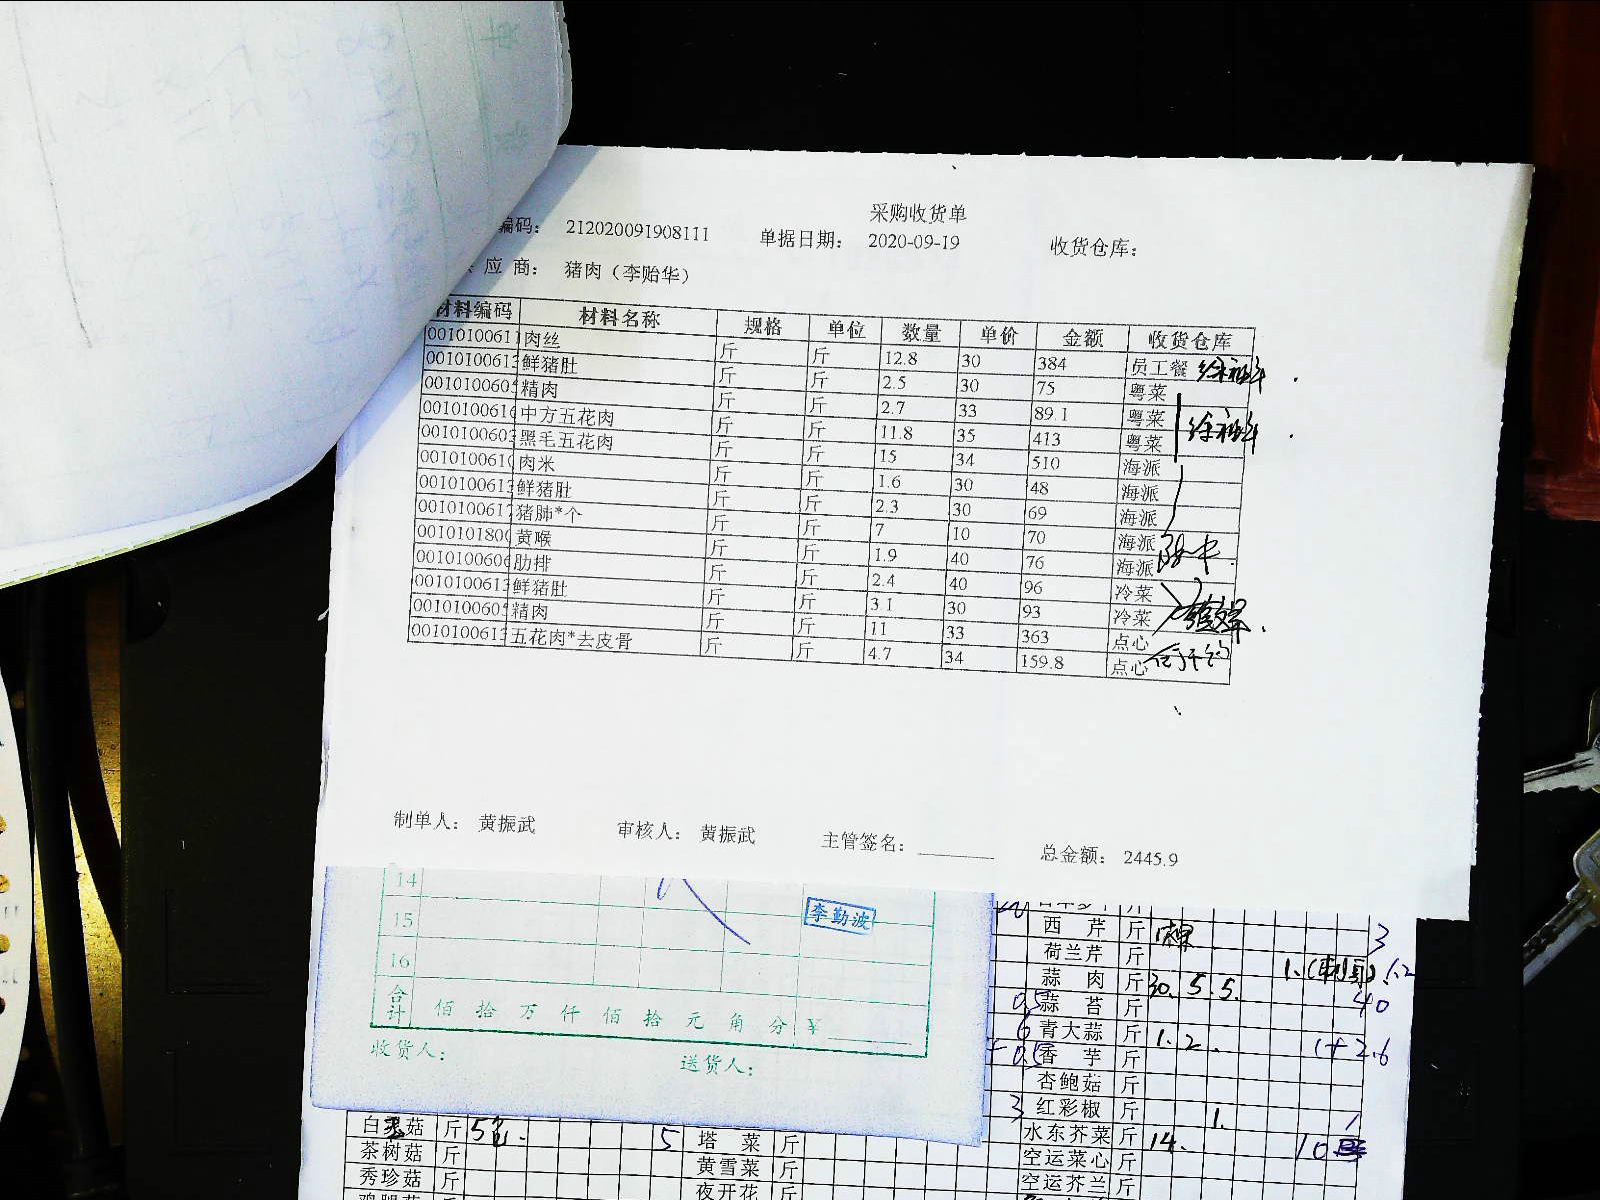 采购收货单
编码： 212020091908111 单据日期： 2020-09-19 收货仓库：
应 商： 猪肉（李贻华）
材料编码 材料名称 规格 单位 数量 单价 金额 收货仓库
0010100611 肉丝 斤 斤 12.8 30 384 员工餐
001010061 鲜猪肚 斤 斤 2.5 30 75 粤菜
001010060 精肉 斤 斤 2.7 33 89.1 粤菜
001010061 中方五花肉 斤 斤 11.8 35 413 粤菜
001010060 黑毛五花肉 斤 斤 15 34 510 海派
001010061 肉米 斤 斤 1.6 30 48 海派
001010061 鲜猪肚 斤 斤 2.3 30 69 海派
001010061 猪肺*个 斤 斤 7 10 70 海派
001010180 黄喉 斤 斤 1.9 40 76 海派
001010060 肋排 斤 斤 2.4 40 96 冷菜
001010061 鲜猪肚 斤 斤 3.1 30 93 冷菜
001010060 精肉 斤 斤 11 33 363 点心
001010061 五花肉*去皮骨 斤 斤 4.7 34 159.8 点心
制单人： 黄振武 审核人： 黄振武 主管签名： 总金额： 2445.9
14
15 李勤波
16
合计 佰 拾 万 仟 佰 拾 元 角 分 ￥
收货人： 送货人：
西芹 斤 3
荷兰芹 斤
蒜肉 斤 30. 5. 5.
0.5 蒜苔 斤 40
6 青大蒜 斤 1. 2. 1+2.6
0.5 香芋 斤
杏鲍菇 斤
3 红彩椒 斤 1. 1
水东芥菜 斤 14. 10
空运菜心 斤
空运芥兰 斤
白玉菇 斤 5包. 5 塔菜 斤
茶树菇 斤 黄雪菜 斤
秀珍菇 斤 夜开花 斤